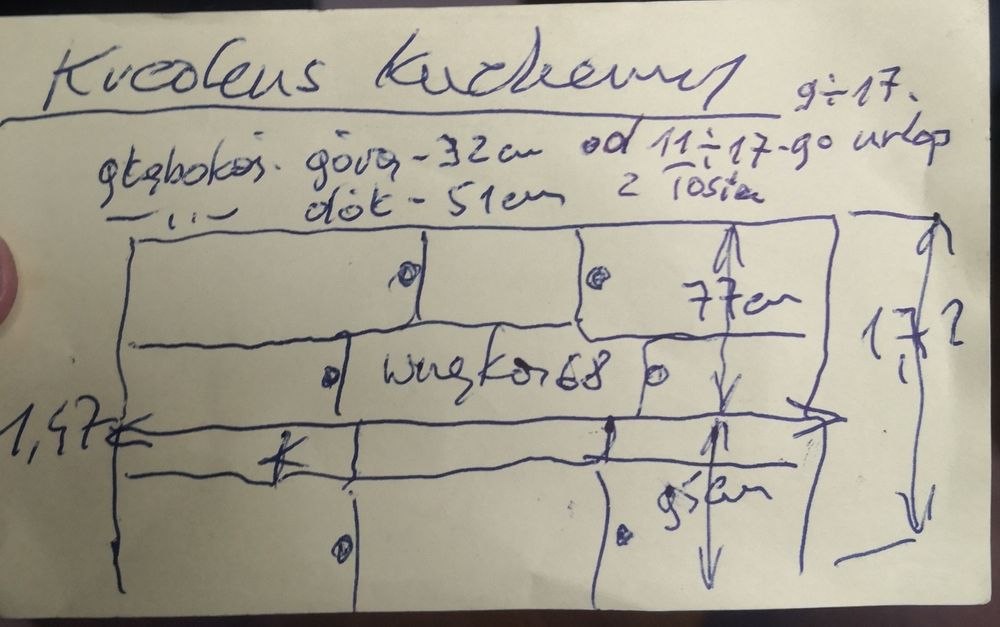 Kredens kuchenny
9÷17.
głębokoś. górą - 32 cm
od 11÷17-go urlop
—„— dół - 51 cm
z Tosią
77 cm
1,72
wnęka 68
1,47
95 cm